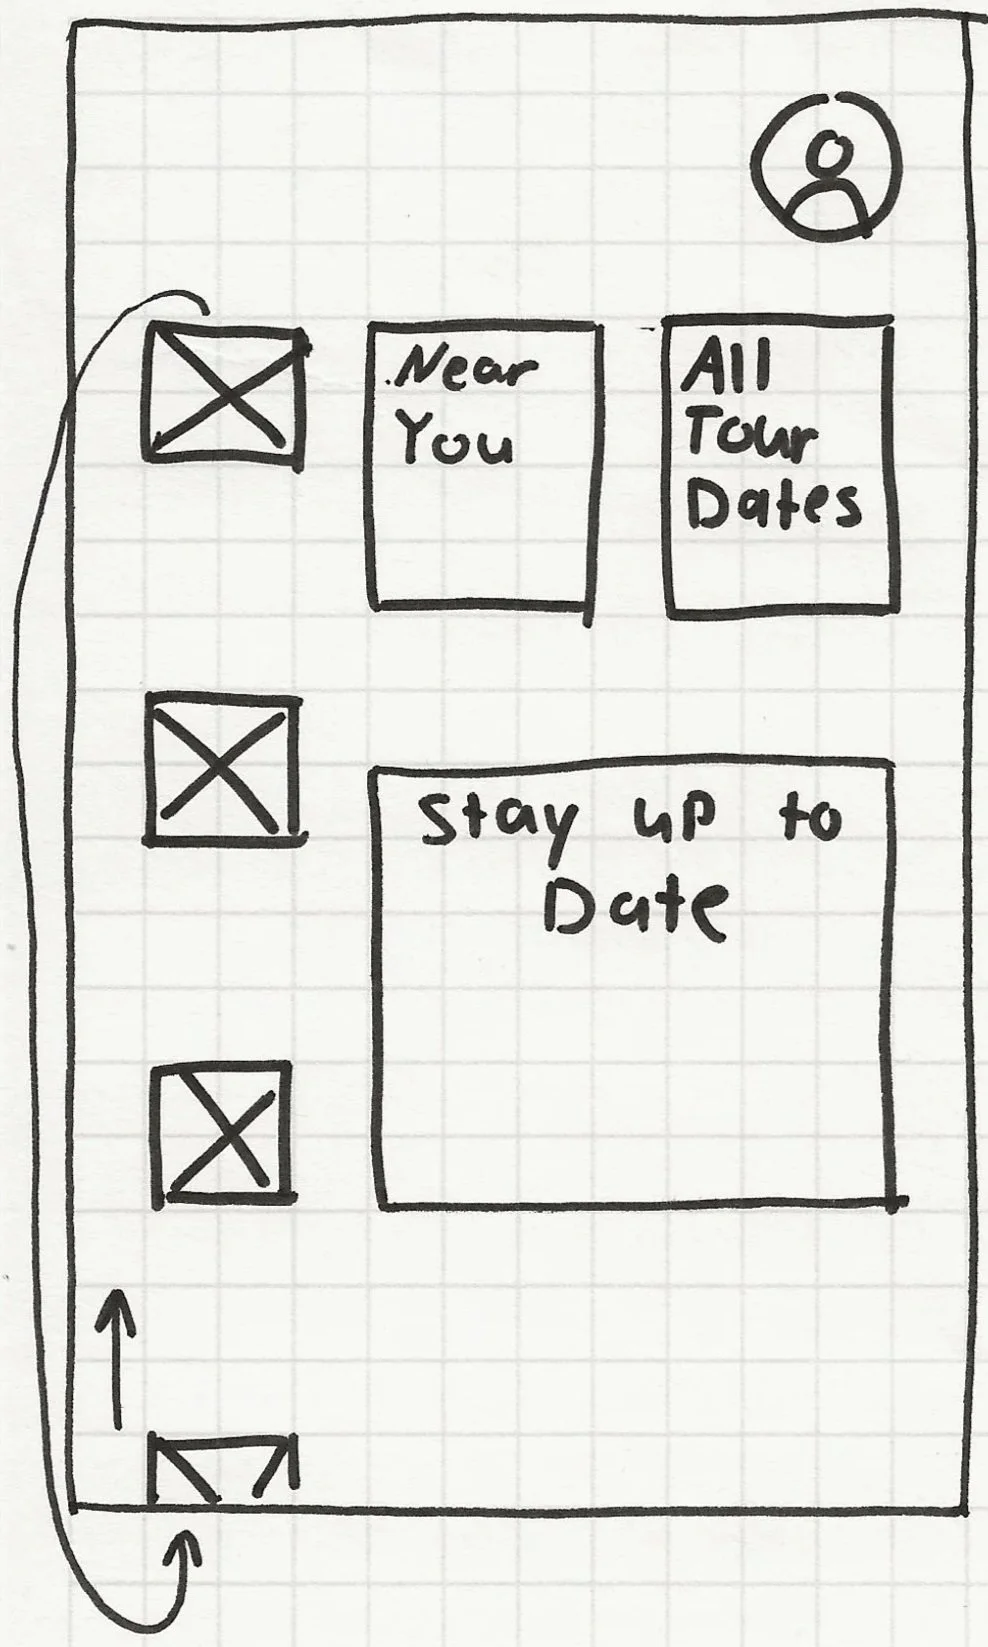 Near
You
All
Tour
Dates
Stay up to
Date